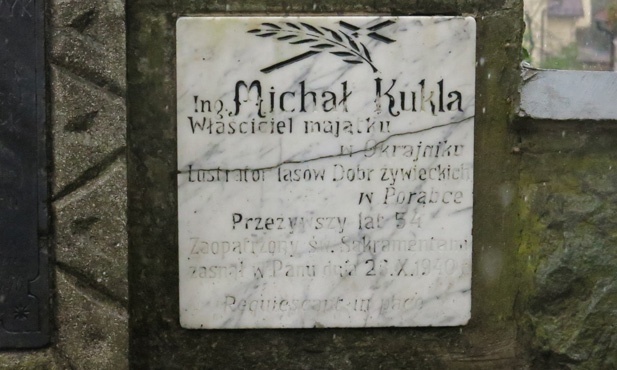 Ing. Michał Kukla
Właściciel majątku
w Okrajniku
Lustrator lasów Dobr żywieckich
w Porąbce
Przeżywszy lat 54
Zaopatrzony św. Sakramentami
zasnął w Panu dnia 28.X.1940 r.
Requiescant in pace